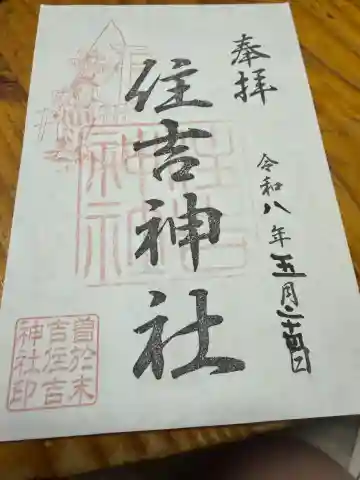 奉拝
令和八年五月二十四日
住吉神社
住吉
神社
曽於末
吉住吉
神社印